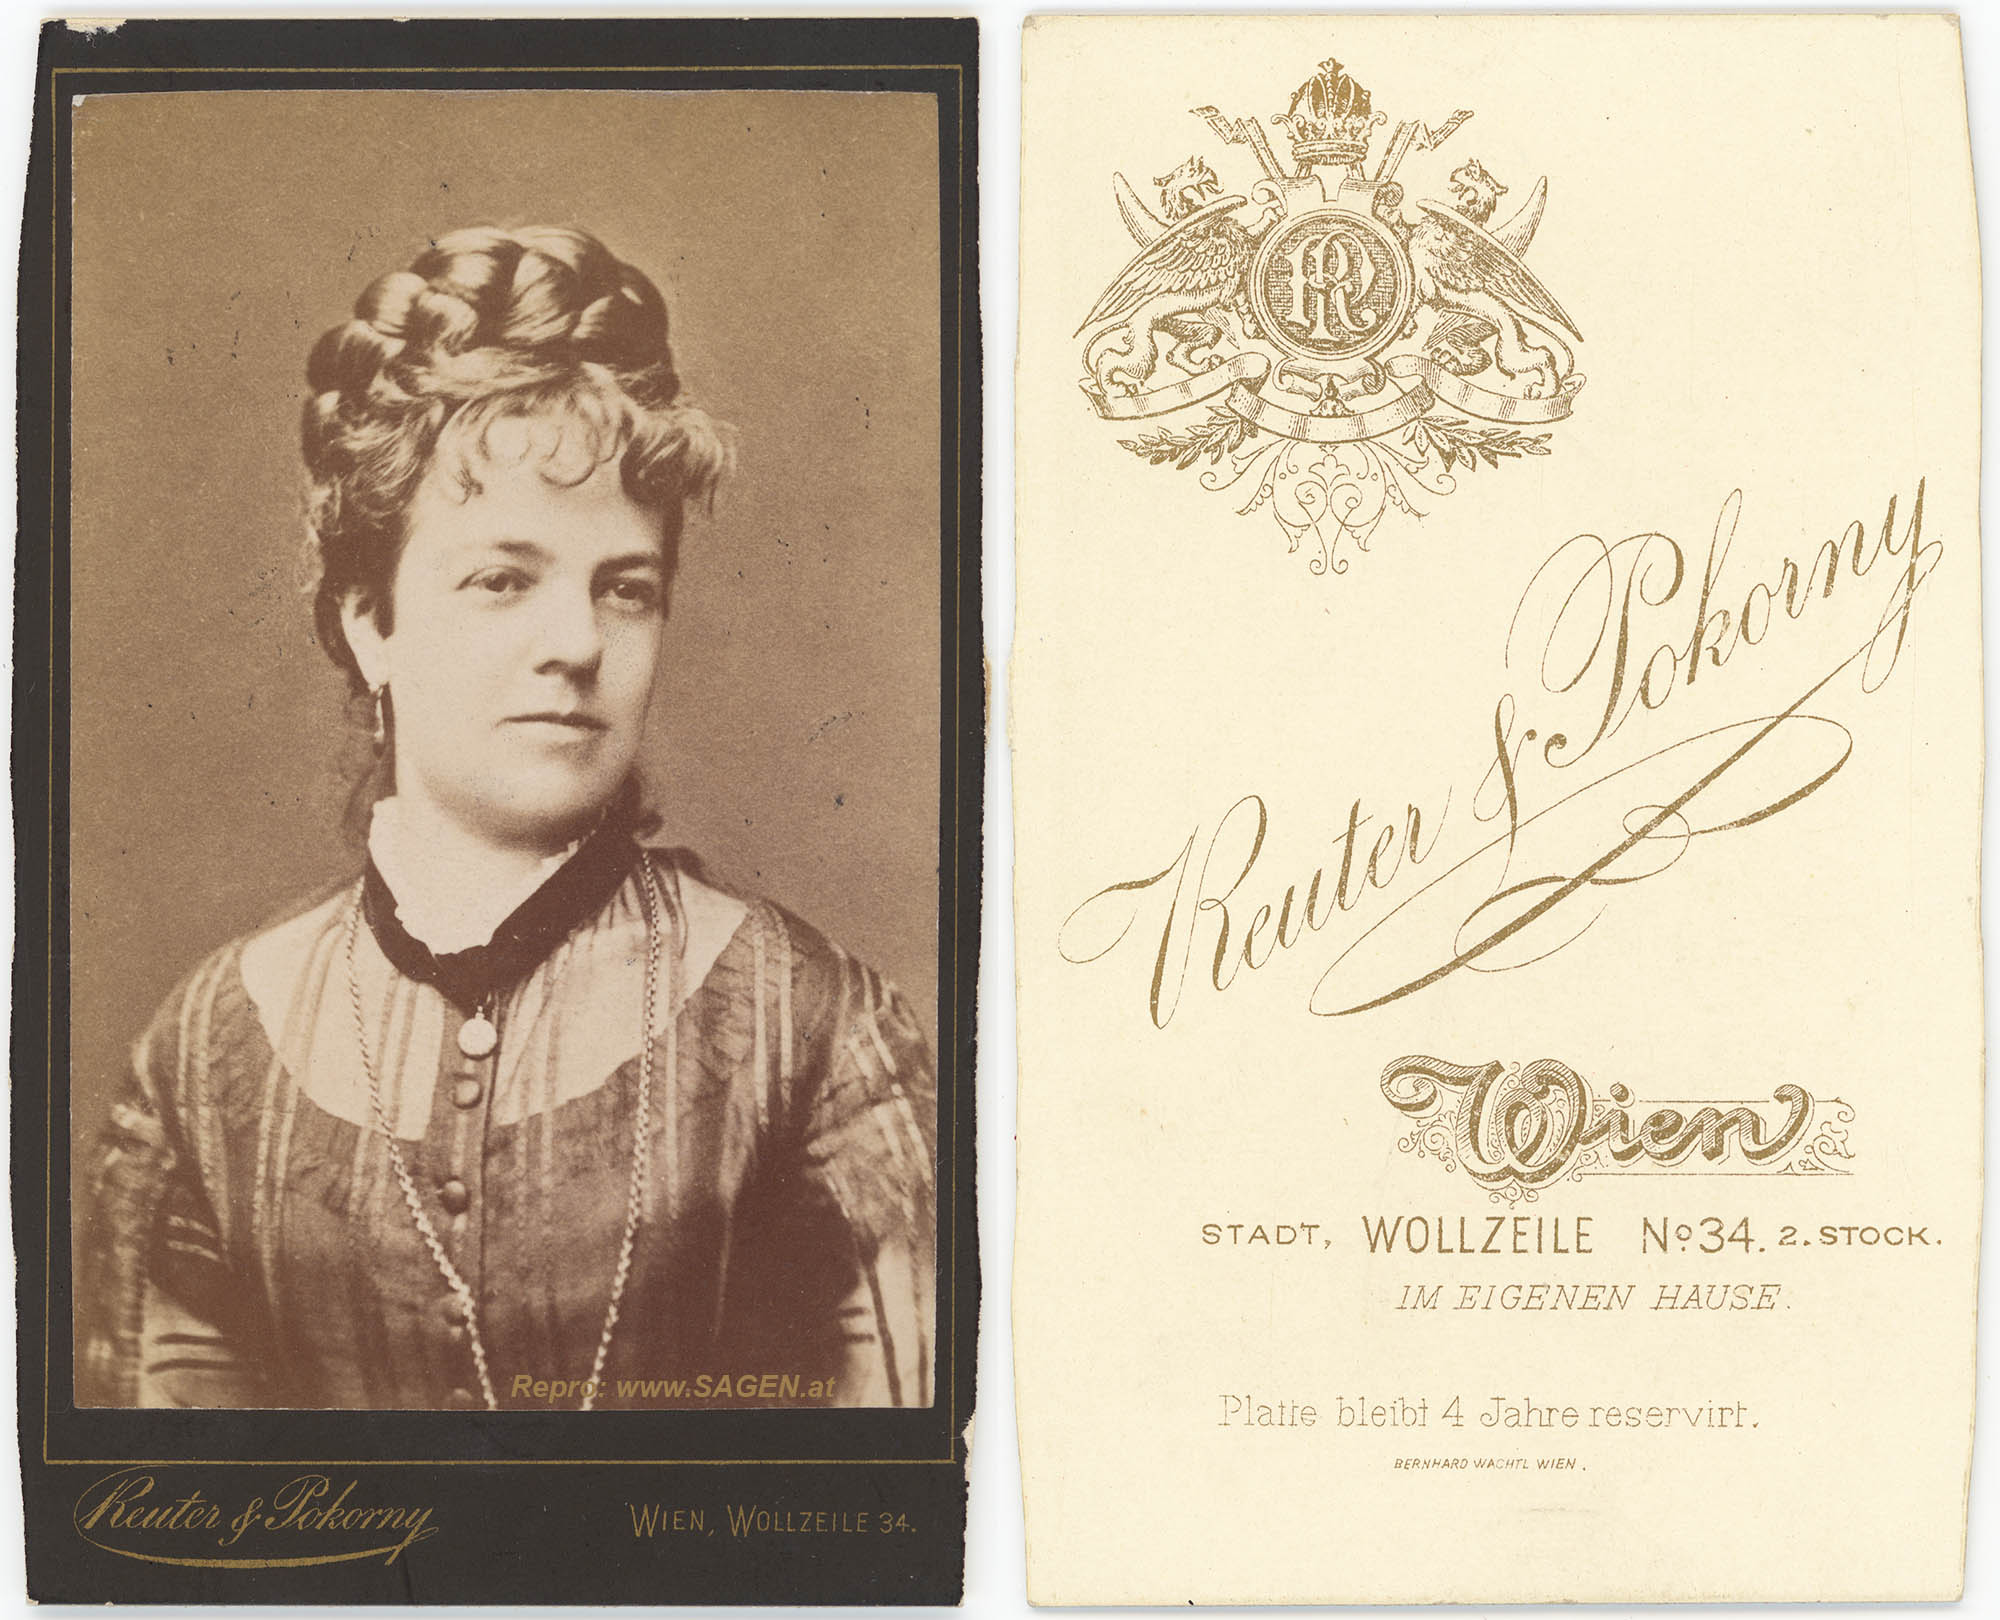 Repro: www.SAGEN.at
Reuter & Pokorny
WIEN, WOLLZEILE 34.
PR
Reuter & Pokorny
Wien
STADT, WOLLZEILE No 34. 2. STOCK.
IM EIGENEN HAUSE.
Platte bleibt 4 Jahre reservirt.
BERNHARD WACHTL WIEN.